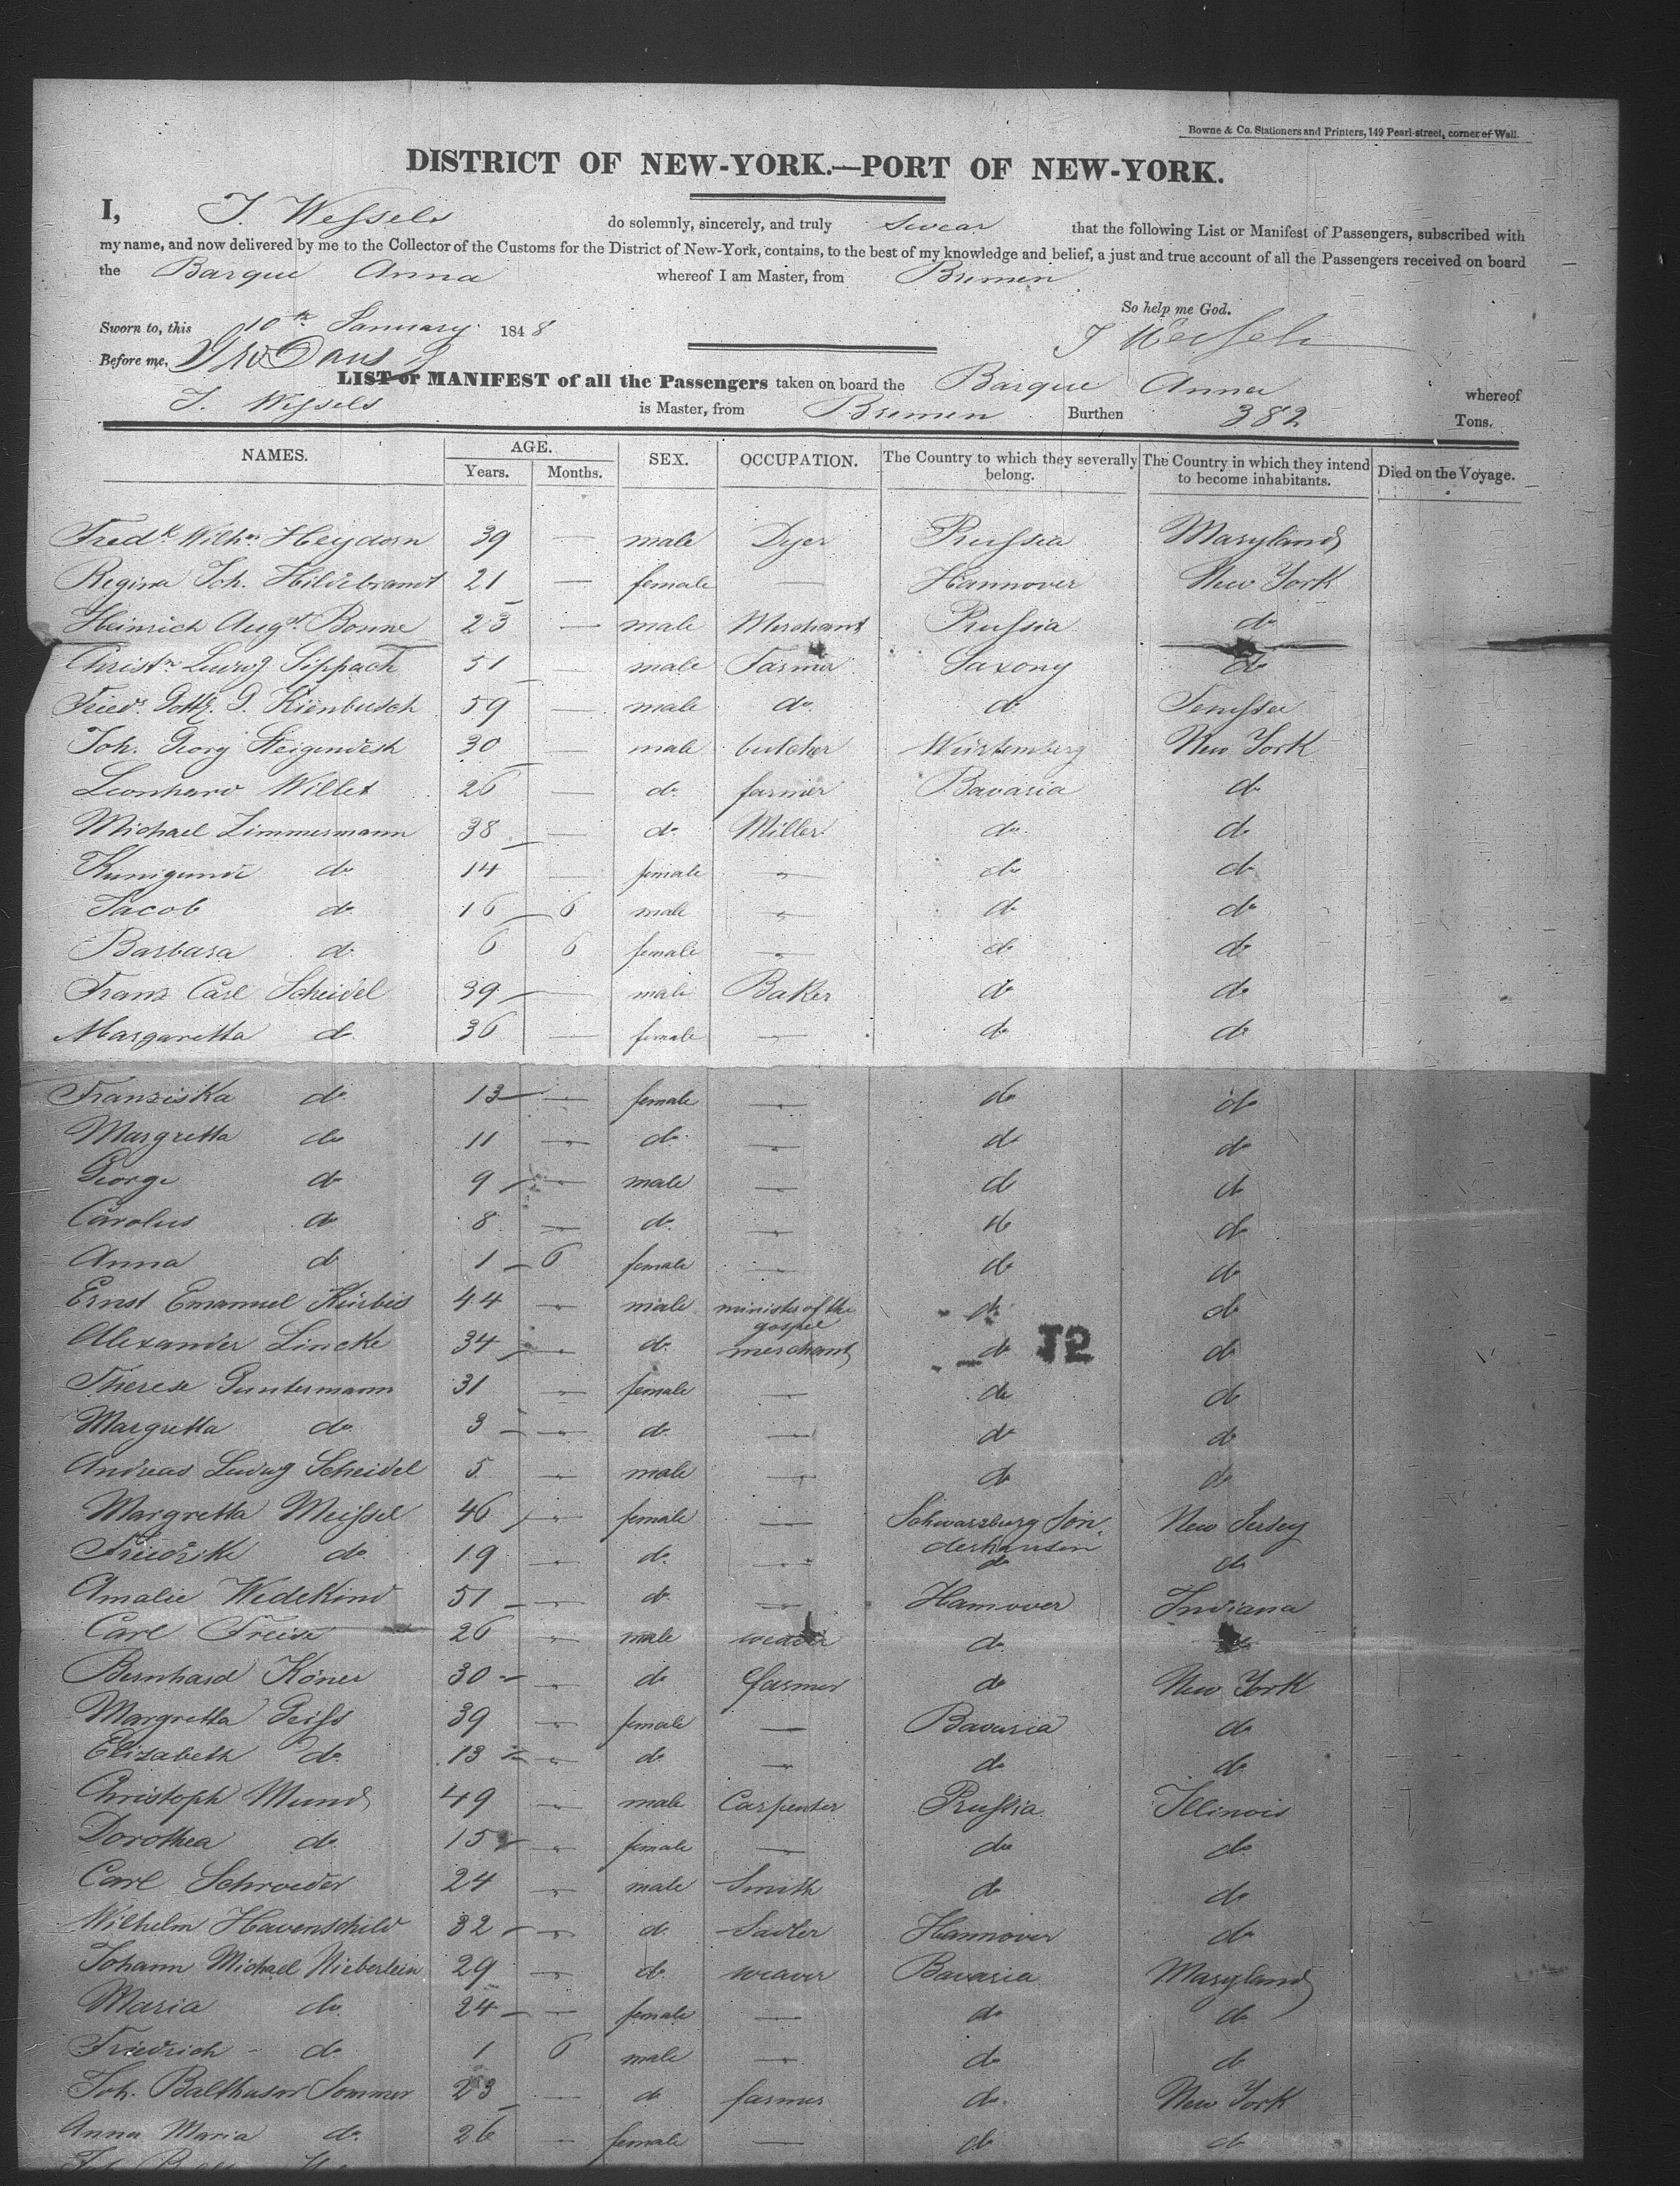 Bowne & Co. Stationers and Printers, 149 Pearl-street, corner of Wall.
DISTRICT OF NEW-YORK.—PORT OF NEW-YORK.
I, J. Wessels do solemnly, sincerely, and truly swear that the following List or Manifest of Passengers, subscribed with
my name, and now delivered by me to the Collector of the Customs for the District of New-York, contains, to the best of my knowledge and belief, a just and true account of all the Passengers received on board
the Barque Anna whereof I am Master, from Bremen
So help me God.
Sworn to, this 10th January 1848 J Wessels
Before me,
LIST or MANIFEST of all the Passengers taken on board the Barque Anna whereof
J. Wessels is Master, from Bremen Burthen 382 Tons.
NAMES. AGE. Years. Months. SEX. OCCUPATION. The Country to which they severally belong. The Country in which they intend to become inhabitants. Died on the Voyage.
Fredk Wilhm Heydorn 39 — male Dyer Prussia Maryland
Regina Joh. Hildebrandt 21 — female — Hannover New York
Heinrich Augst Bonne 23 — male Merchant Prussia do
Christn Ludwig Sippach 51 — male Farmer Saxony do
Friedr. Gottf. G. Kienbusch 59 — male do. do Tenessee
Joh. Georg Steigendesh 30 — male butcher Würtemberg New York
Leonhard Willet 26 — do. farmer Bavaria do
Michael Zimmermann 38 — do. Miller do. do
Kunigunde do 14 — female — do do
Jacob do 16 6 male — do do
Barbara do. 6 6 female — do do
Franz Carl Scheidel 39 — male Baker do do
Margaretha do 36 — female — do do
Franziska do. 13 — female — do do
Margretha do 11 — do. — do do
George do 9 — male — do do
Carolus do 8 — do. — do do
Anna do 1 6 female — do do
Ernst Emanuel Kürbis 44 — male minister of the gospel do do
Alexander Lincke 34 — do. merchant do do
12
Therese Guntermann 31 — female — do do
Margretha do 3 — do. — do do
Andreas Ludwig Scheidel 5 — male — do do
Margretha Meissel 46 — female — Schwarzburg Sondershausen New Jersey
Friedrike do 19 — do. — do do
Amalie Wedekind 51 — do. — Hannover Indiana
Carl Freise 26 — male weaver do. do
Bernhard Köner 30 — do farmer do New York
Margretha Geiss 39 — female — Bavaria do
Elizabeth do. 13 — do. — do do
Christoph Mund 49 — male Carpenter Prussia Illinois
Dorothea do. 15 — female — do do
Carl Schroeder 24 — male Smith do do
Wilhelm Havenschild 32 — do. Sadler Hannover do
Johann Michael Nieberlein 29 — do. weaver Bavaria Maryland
Maria do. 24 — female — do do
Friedrich do. 1 6 male — do do
Joh. Balthasar Sommer 23 — do farmer do. New York
Anna Maria do. 26 — female — do do